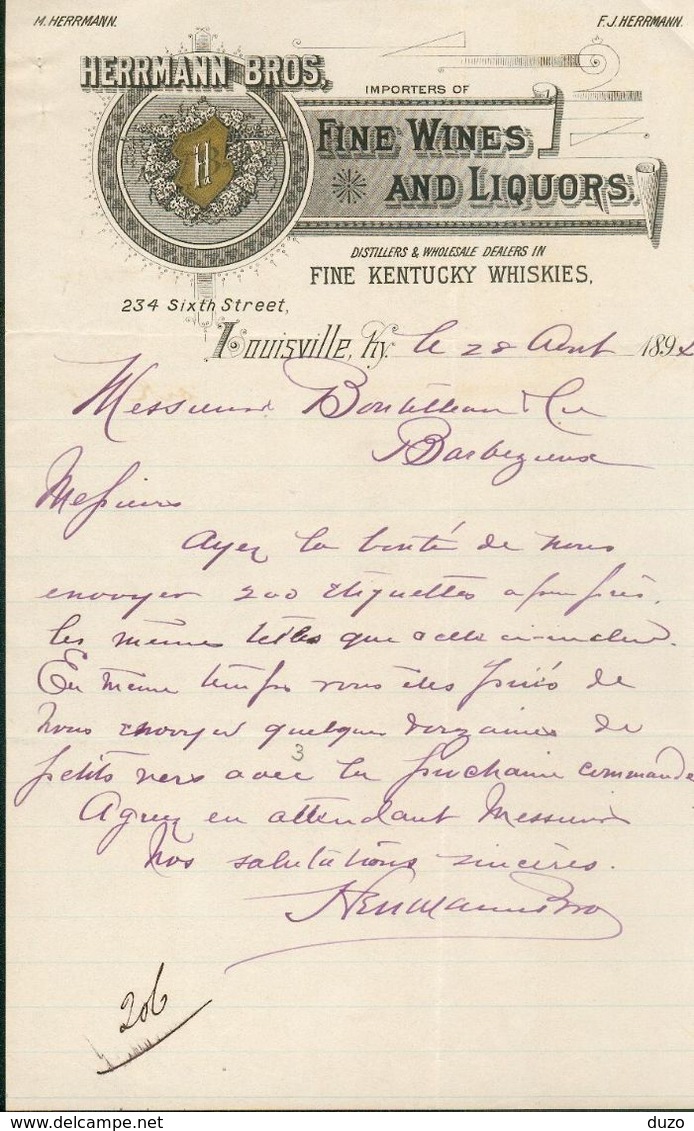 M. HERRMANN.
F. J. HERRMANN.
HERRMANN BROS,
IMPORTERS OF
FINE WINES
AND LIQUORS.
H
DISTILLERS & WHOLESALE DEALERS IN
FINE KENTUCKY WHISKIES,
234 Sixth Street,
Louisville, Ky. le 28 Aout 1894
Messieurs Boutelleau & Cie
Barbezieux
Messieurs
Ayez la bonté de nous
envoyer 200 étiquettes a peu près
les mêmes telles que celle ci-inclus.
En même temps vous êtes priés de
nous envoyer quelques douzaines de
3
petits vers avec la prochaine commande
Agréez en attendant Messieurs
Nos salutations sincères.
Herrmann Bros
206
duzo